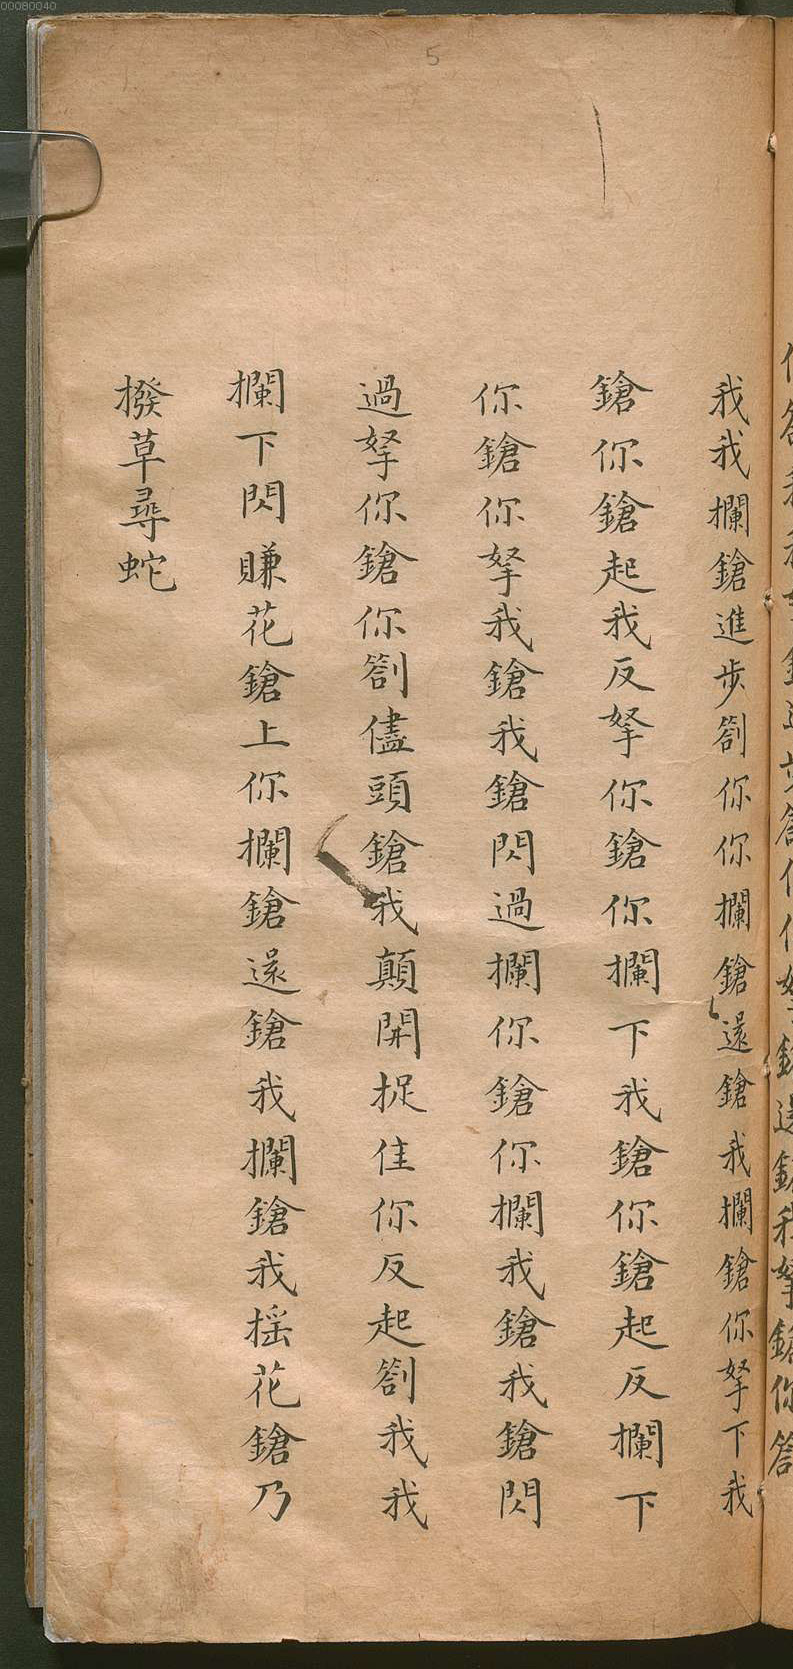 00080040
5
我我攔鎗進步劄你你攔鎗還鎗我攔鎗你拏下我
鎗你鎗起我反拏你鎗你攔下我鎗你鎗起反攔下
你鎗你拏我鎗我鎗閃過攔你鎗你攔我鎗我鎗閃
過拏你鎗你劄儘頭鎗我顛開捉住你反起劄我我
攔下閃賺花鎗上你攔鎗還鎗我攔鎗我搖花鎗乃
撥草尋蛇